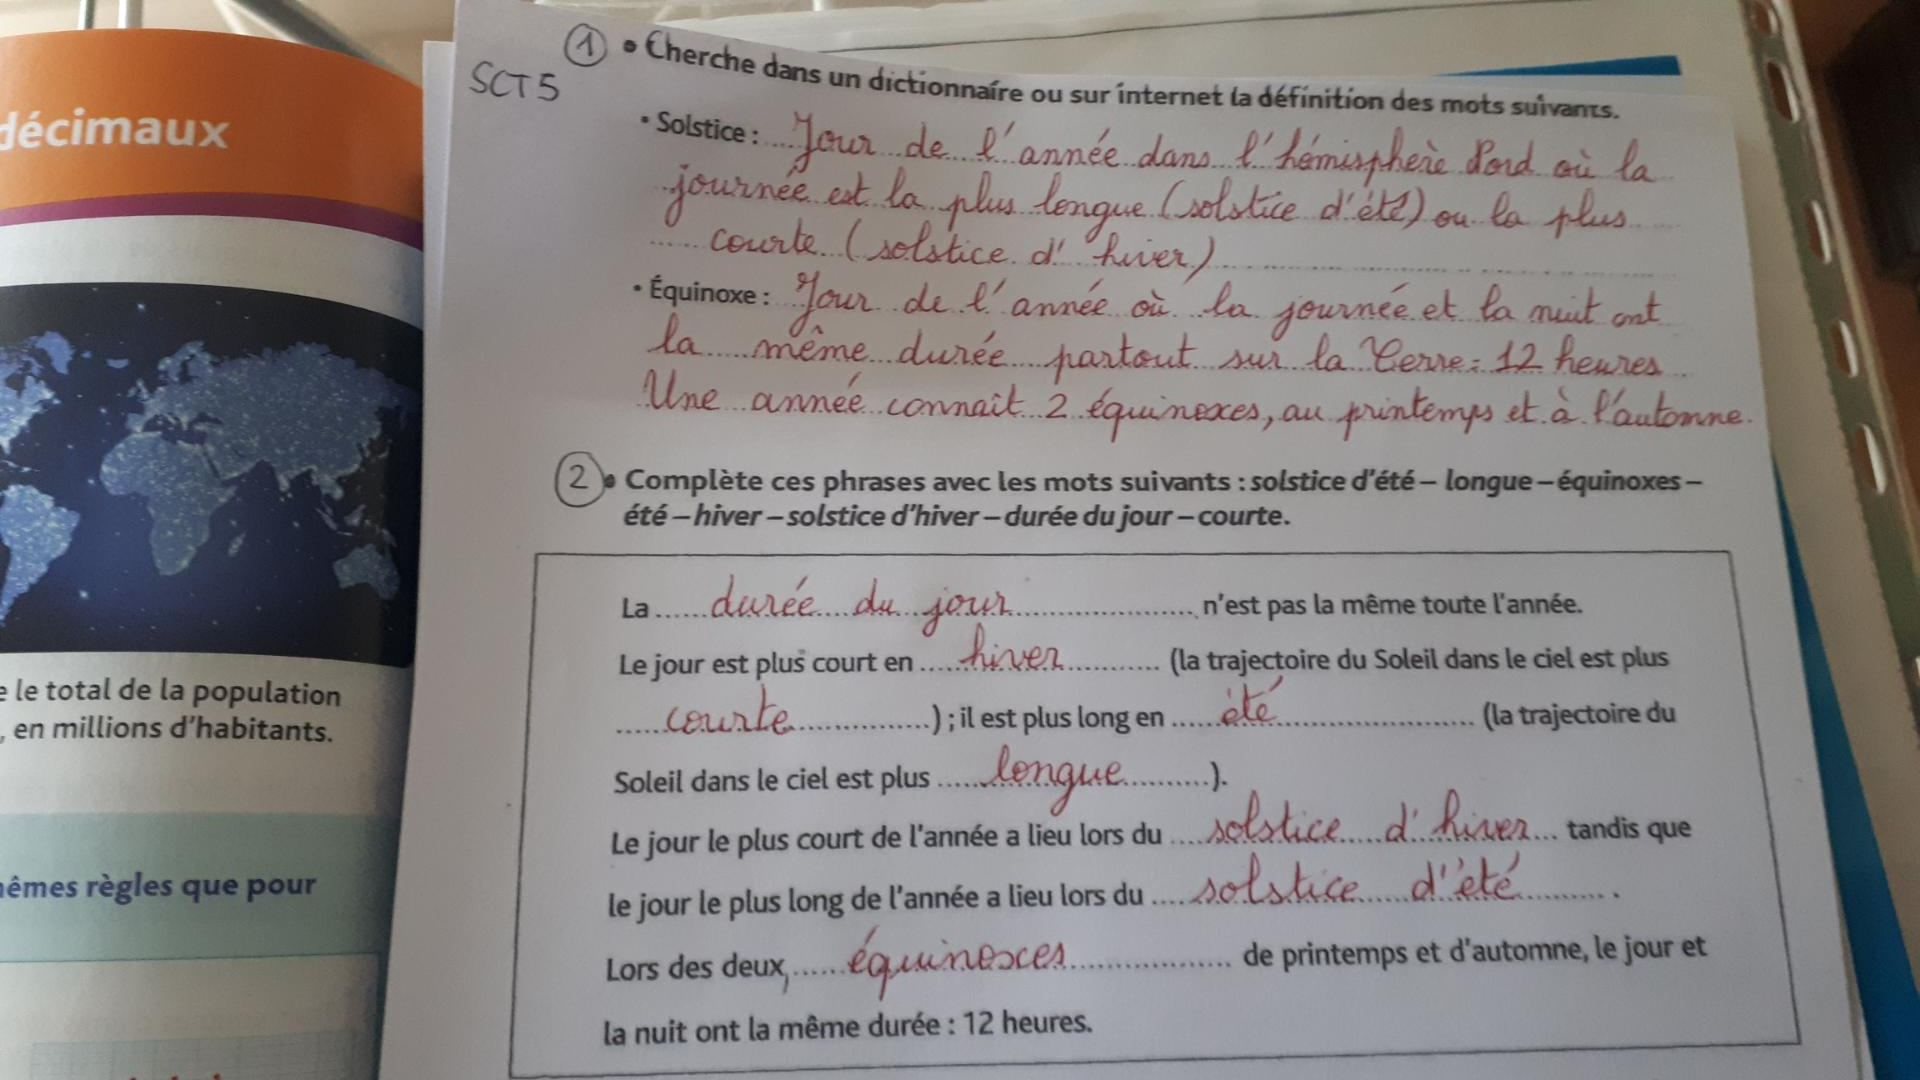 décimaux
le total de la population
, en millions d'habitants.
êmes règles que pour
SCT5
1 • Cherche dans un dictionnaire ou sur internet la définition des mots suivants.
• Solstice : Jour de l'année dans l'hémisphère Nord où la
journée est la plus longue (solstice d'été) ou la plus
courte (solstice d'hiver)
• Équinoxe : Jour de l'année où la journée et la nuit ont
la même durée partout sur la Terre : 12 heures
Une année connait 2 équinoxes, au printemps et à l'automne.
2 • Complète ces phrases avec les mots suivants : solstice d'été – longue – équinoxes –
été – hiver – solstice d'hiver – durée du jour – courte.
La ...... durée du jour ...... n'est pas la même toute l'année.
Le jour est plus court en .... hiver .......... (la trajectoire du Soleil dans le ciel est plus
...... courte ..............) ; il est plus long en ..... été ...................... (la trajectoire du
Soleil dans le ciel est plus ..... longue ..........).
Le jour le plus court de l'année a lieu lors du .... solstice d'hiver ... tandis que
le jour le plus long de l'année a lieu lors du .... solstice d'été .......... .
Lors des deux, ...... équinoxes .................. de printemps et d'automne, le jour et
la nuit ont la même durée : 12 heures.